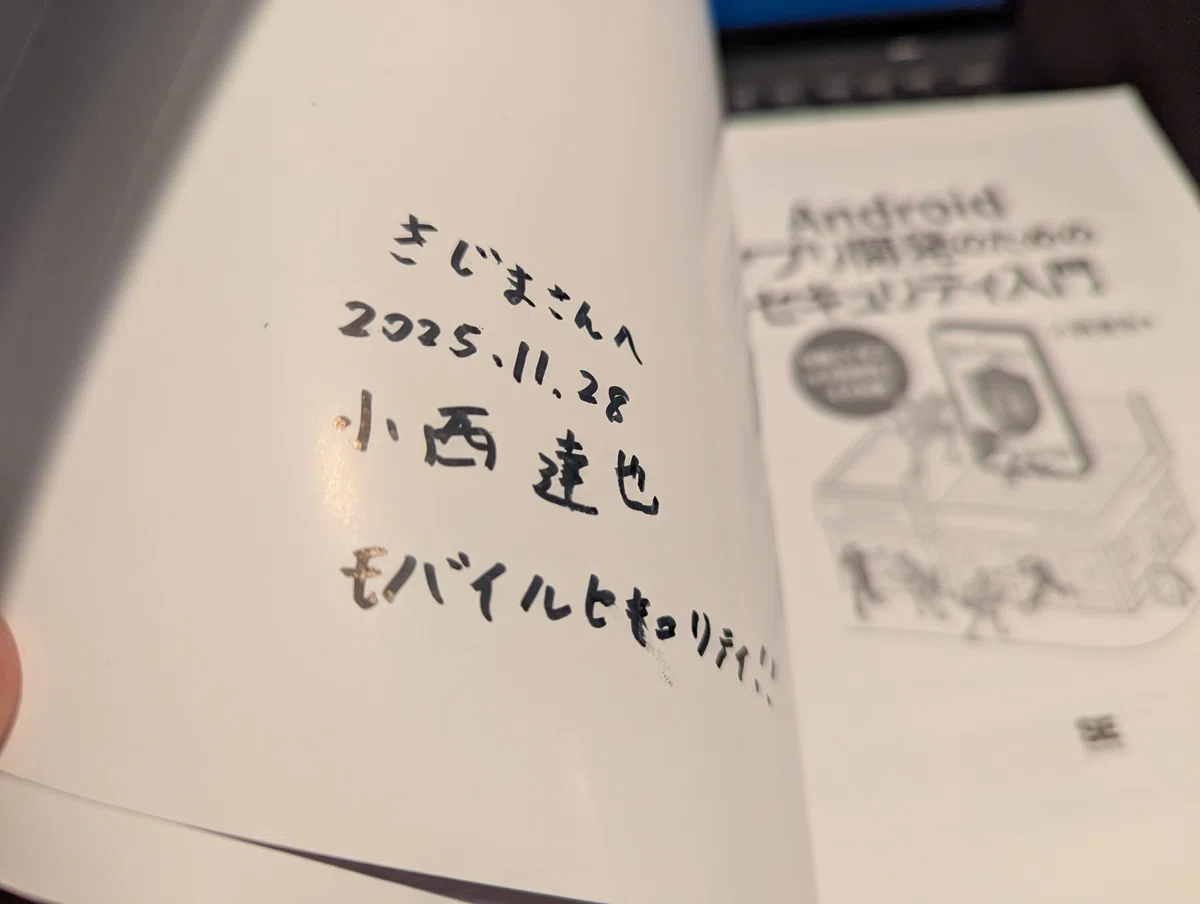 きじまさんへ
2025.11.28
小西 達也
モバイルセキュリティ!!
Android
アプリ開発のための
セキュリティ入門
SE